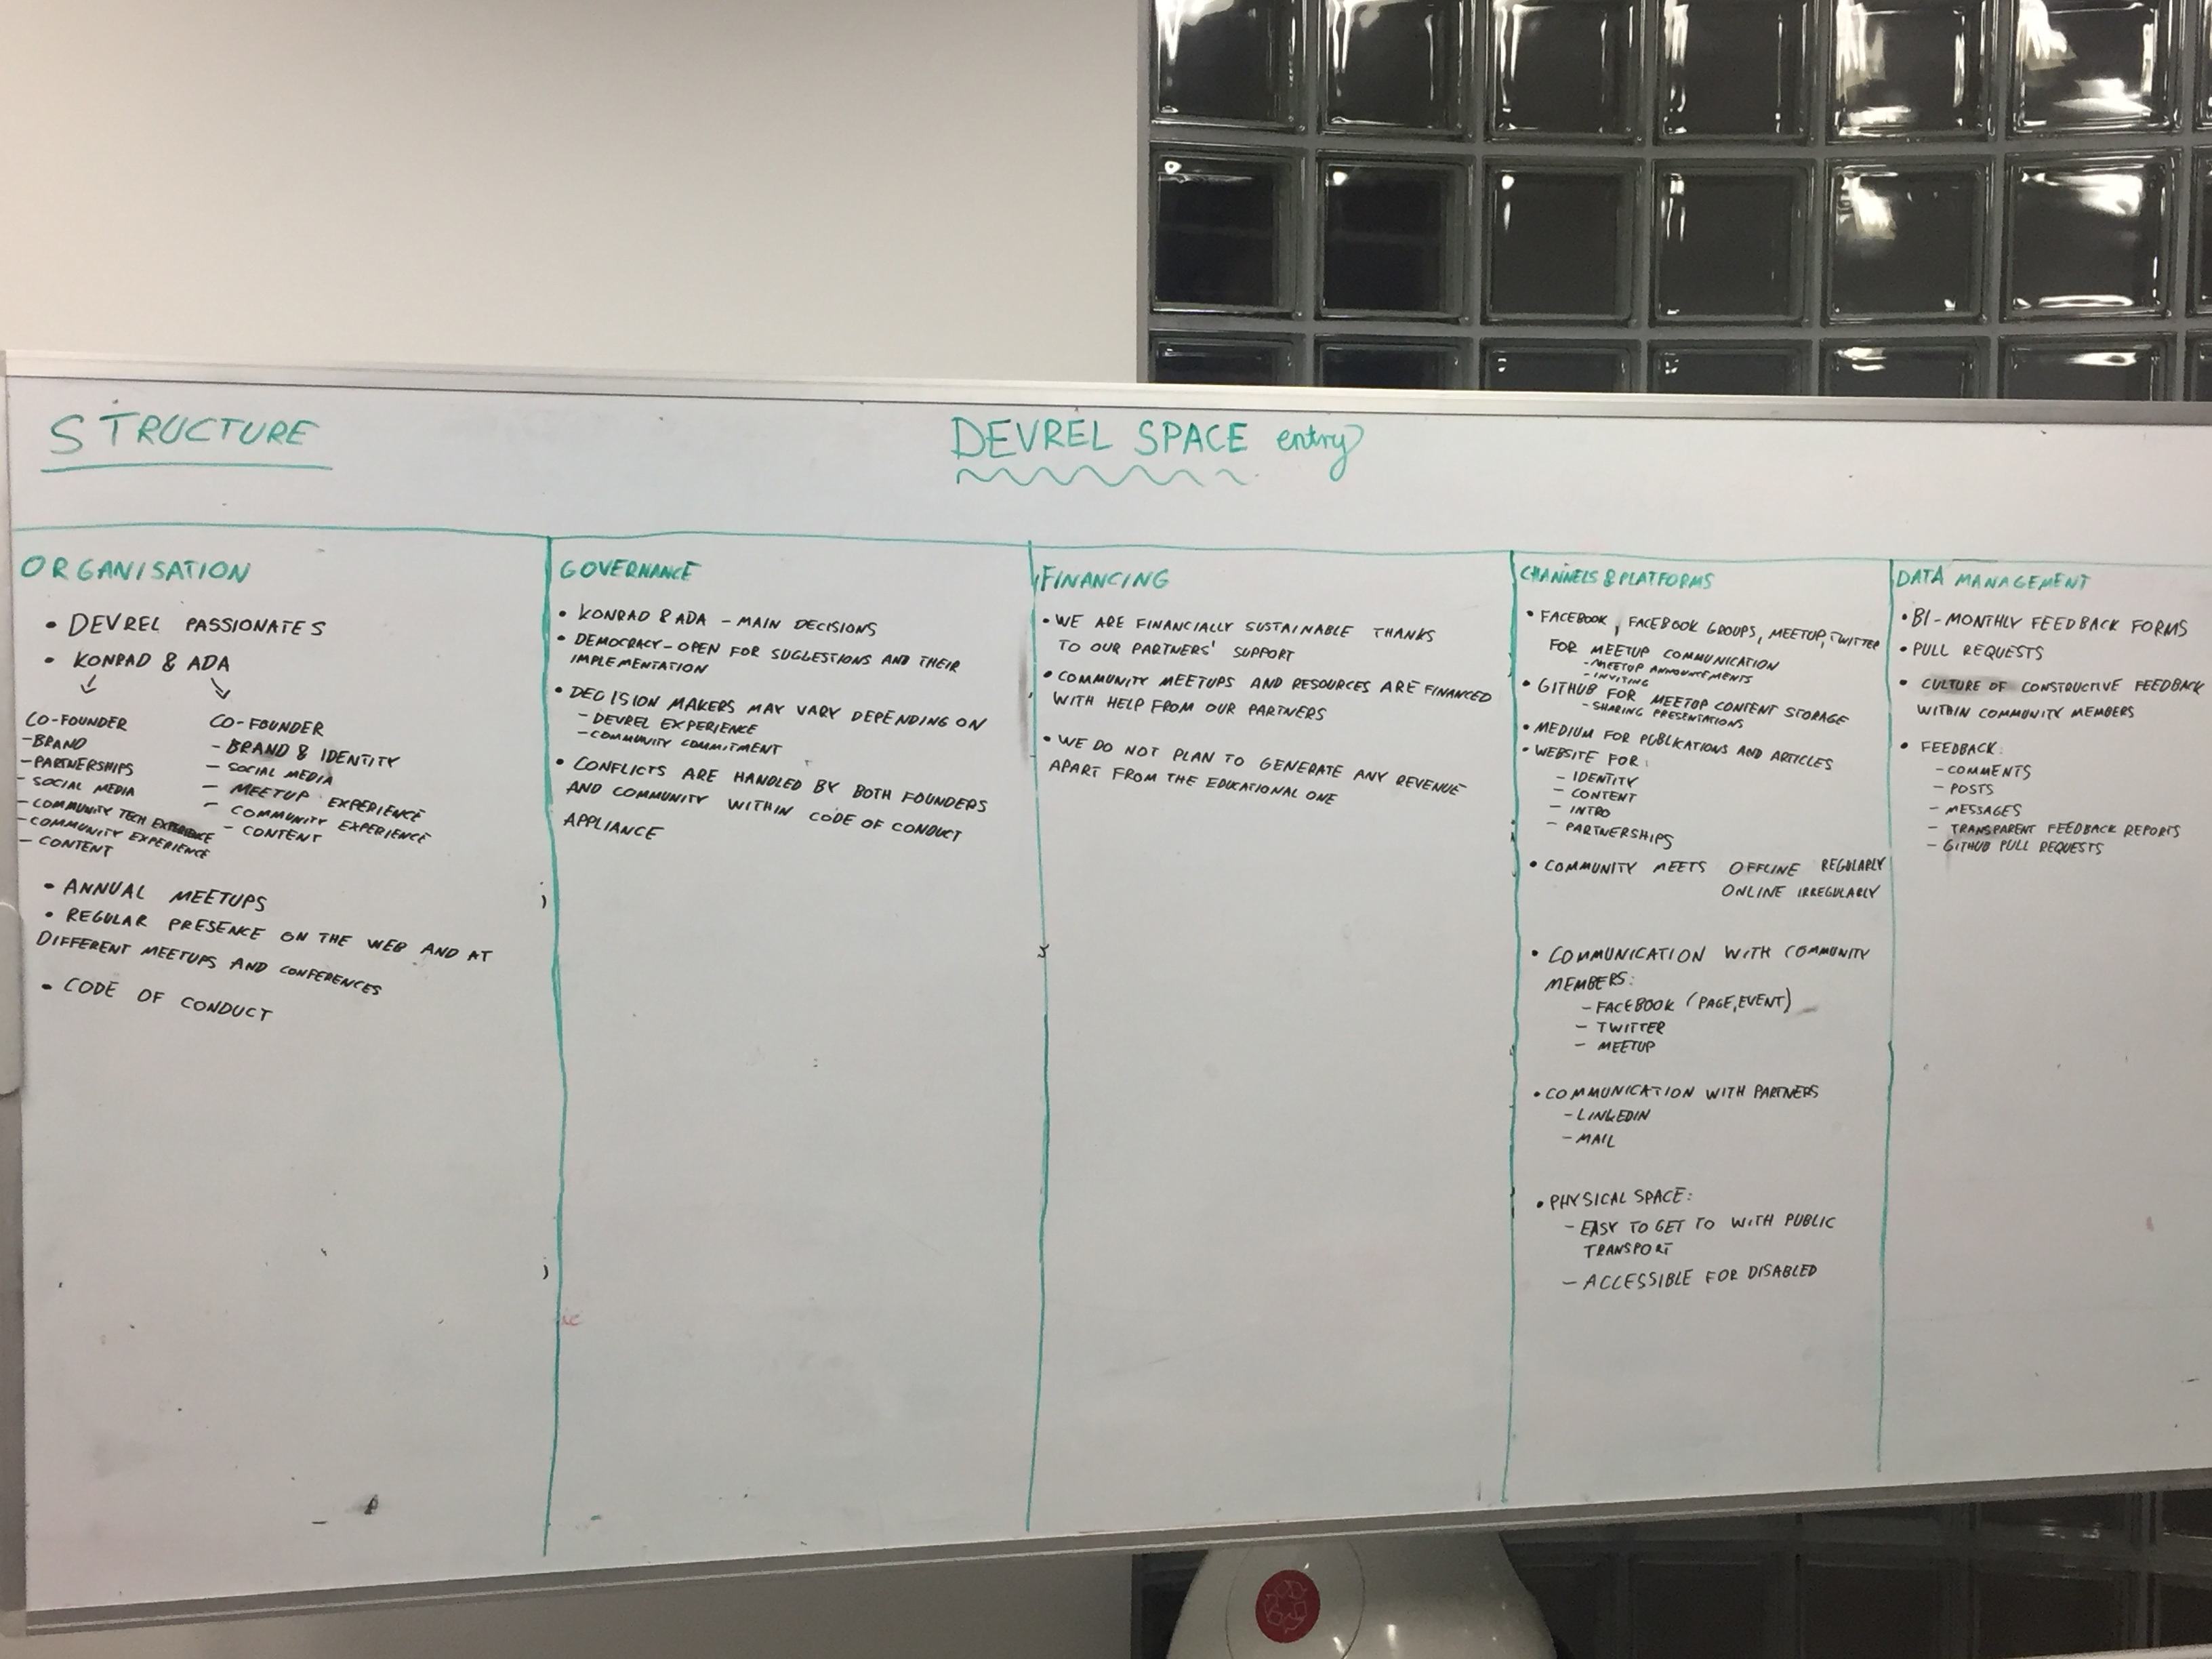 STRUCTURE
DEVREL SPACE entry
ORGANISATION
• DEVREL PASSIONATES
• KONRAD & ADA
CO-FOUNDER
-BRAND
-PARTNERSHIPS
- SOCIAL MEDIA
- COMMUNITY TECH EXPERIENCE
- COMMUNITY EXPERIENCE
- CONTENT
CO-FOUNDER
- BRAND & IDENTITY
- SOCIAL MEDIA
- MEETUP EXPERIENCE
- COMMUNITY EXPERIENCE
- CONTENT
• ANNUAL MEETUPS
• REGULAR PRESENCE ON THE WEB AND AT
DIFFERENT MEETUPS AND CONFERENCES
• CODE OF CONDUCT
GOVERNANCE
• KONRAD & ADA - MAIN DECISIONS
• DEMOCRACY - OPEN FOR SUGGESTIONS AND THEIR
IMPLEMENTATION
• DECISION MAKERS MAY VARY DEPENDING ON
- DEVREL EXPERIENCE
- COMMUNITY COMMITMENT
• CONFLICTS ARE HANDLED BY BOTH FOUNDERS
AND COMMUNITY WITHIN CODE OF CONDUCT
APPLIANCE
FINANCING
• WE ARE FINANCIALLY SUSTAINABLE THANKS
TO OUR PARTNERS' SUPPORT
• COMMUNITY MEETUPS AND RESOURCES ARE FINANCED
WITH HELP FROM OUR PARTNERS
• WE DO NOT PLAN TO GENERATE ANY REVENUE
APART FROM THE EDUCATIONAL ONE
CHANNELS & PLATFORMS
• FACEBOOK, FACEBOOK GROUPS, MEETUP, TWITTER
FOR MEETUP COMMUNICATION
- MEETUP ANNOUNCEMENTS
- INVITING
• GITHUB FOR MEETUP CONTENT STORAGE
- SHARING PRESENTATIONS
• MEDIUM FOR PUBLICATIONS AND ARTICLES
• WEBSITE FOR:
- IDENTITY
- CONTENT
- INTRO
- PARTNERSHIPS
• COMMUNITY MEETS OFFLINE REGULARLY
ONLINE IRREGULARLY
• COMMUNICATION WITH COMMUNITY
MEMBERS:
- FACEBOOK (PAGE, EVENT)
- TWITTER
- MEETUP
• COMMUNICATION WITH PARTNERS
- LINKEDIN
- MAIL
• PHYSICAL SPACE:
- EASY TO GET TO WITH PUBLIC
TRANSPORT
- ACCESSIBLE FOR DISABLED
DATA MANAGEMENT
• BI-MONTHLY FEEDBACK FORMS
• PULL REQUESTS
• CULTURE OF CONSTRUCTIVE FEEDBACK
WITHIN COMMUNITY MEMBERS
• FEEDBACK:
- COMMENTS
- POSTS
- MESSAGES
- TRANSPARENT FEEDBACK REPORTS
- GITHUB PULL REQUESTS